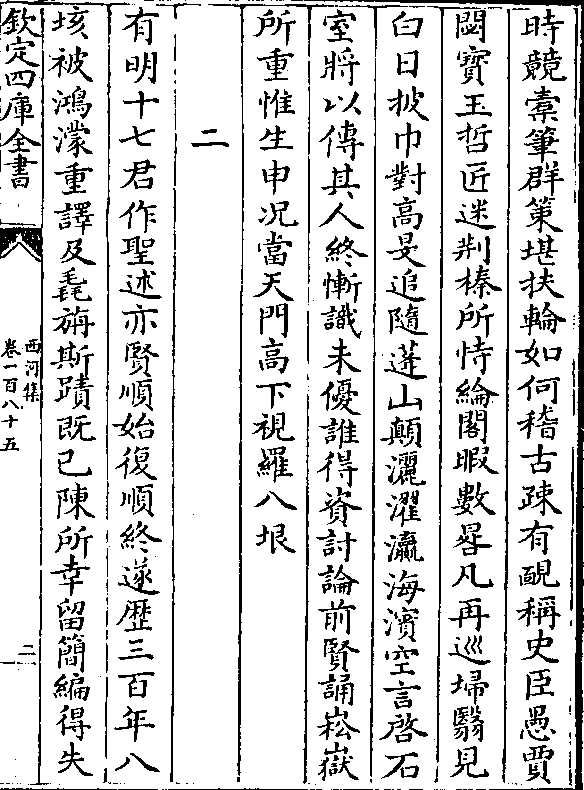 時競橐筆群策堪扶輪如何稽古疎有靦稱史臣愚賈
闚寳玉哲匠迷荆榛所恃綸閣暇數晷凡再巡埽翳見
白日披巾對高旻追隨蓬山顛灑濯瀛海濱空言啓石
室將以傳其人終慚識未優誰得資討論前賢誦崧嶽
所重惟生申况當天門高下視羅八垠
二
有明十七君作聖述亦賢順始復順終遂歴三百年八
垓被鴻濛重譯及毳旃斯蹟既已陳所幸留簡編得失
欽定四庫全書
西河集
卷一百八十五
二